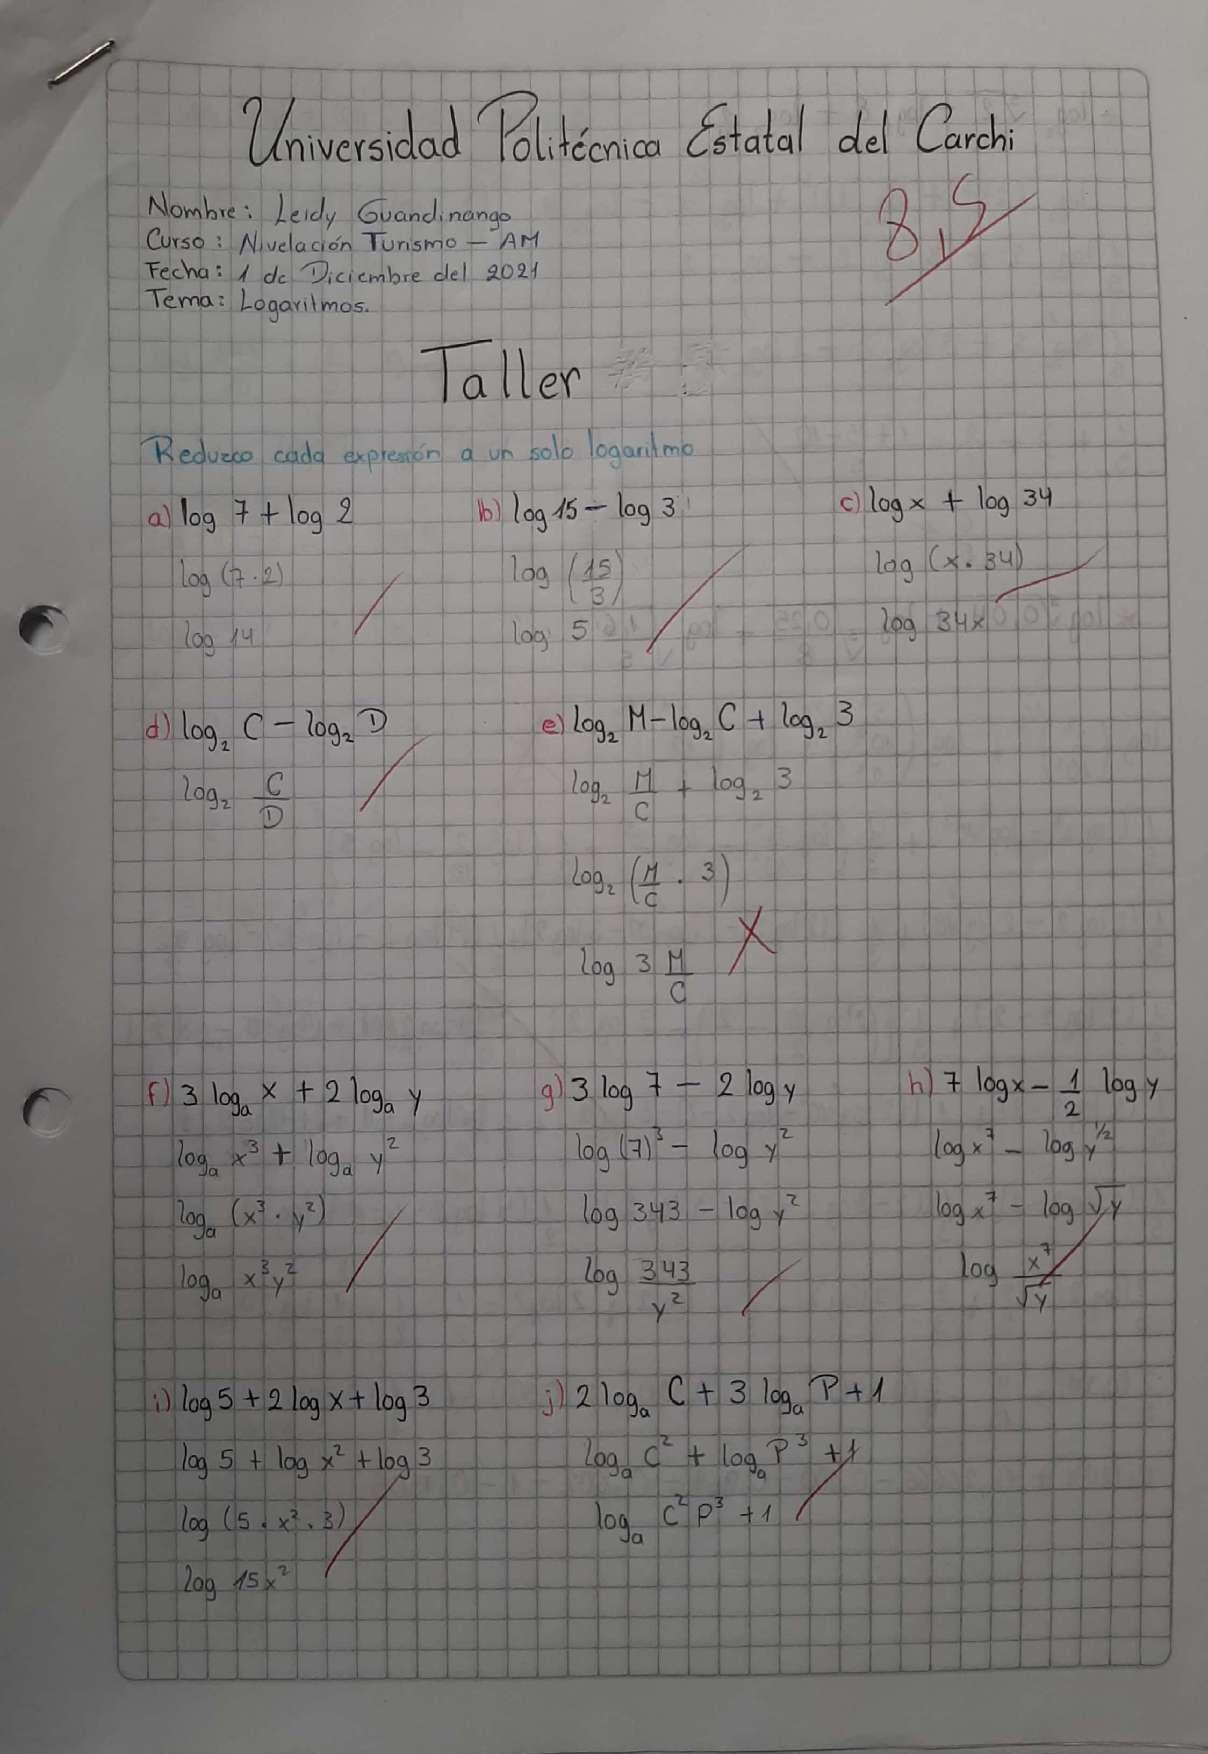 Universidad Politécnica Estatal del Carchi
Nombre: Leidy Guandinango
Curso: Nivelación Turismo - AM
Fecha: 1 de Diciembre del 2021
Tema: Logaritmos.
8,5
Taller
Reduzco cada expresión a un solo logaritmo
a) log 7 + log 2
log (7 · 2)
log 14
b) log 15 - log 3
log (15/3)
log 5
c) log x + log 34
log (x · 34)
log 34x
d) log₂ C - log₂ D
log₂ C/D
e) log₂ M - log₂ C + log₂ 3
log₂ M/C + log₂ 3
log₂ (M/C · 3)
log 3 M/C
f) 3 logₐ x + 2 logₐ y
logₐ x³ + logₐ y²
logₐ (x³ · y²)
logₐ x³y²
g) 3 log 7 - 2 log y
log (7)³ - log y²
log 343 - log y²
log 343/y²
h) 7 log x - 1/2 log y
log x⁷ - log y^1/2
log x⁷ - log √y
log x⁷/√y
i) log 5 + 2 log x + log 3
log 5 + log x² + log 3
log (5 · x² · 3)
log 15x²
j) 2 logₐ C + 3 logₐ P + 1
logₐ C² + logₐ P³ + 1
logₐ C² P³ + 1